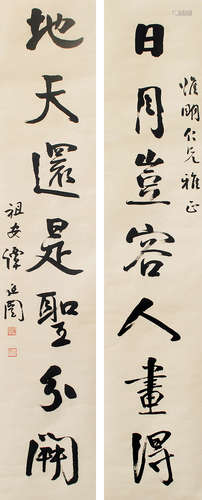 惟明仁兄雅正
日月豈容人畫得
地天還是聖分開
祖安譚延闓